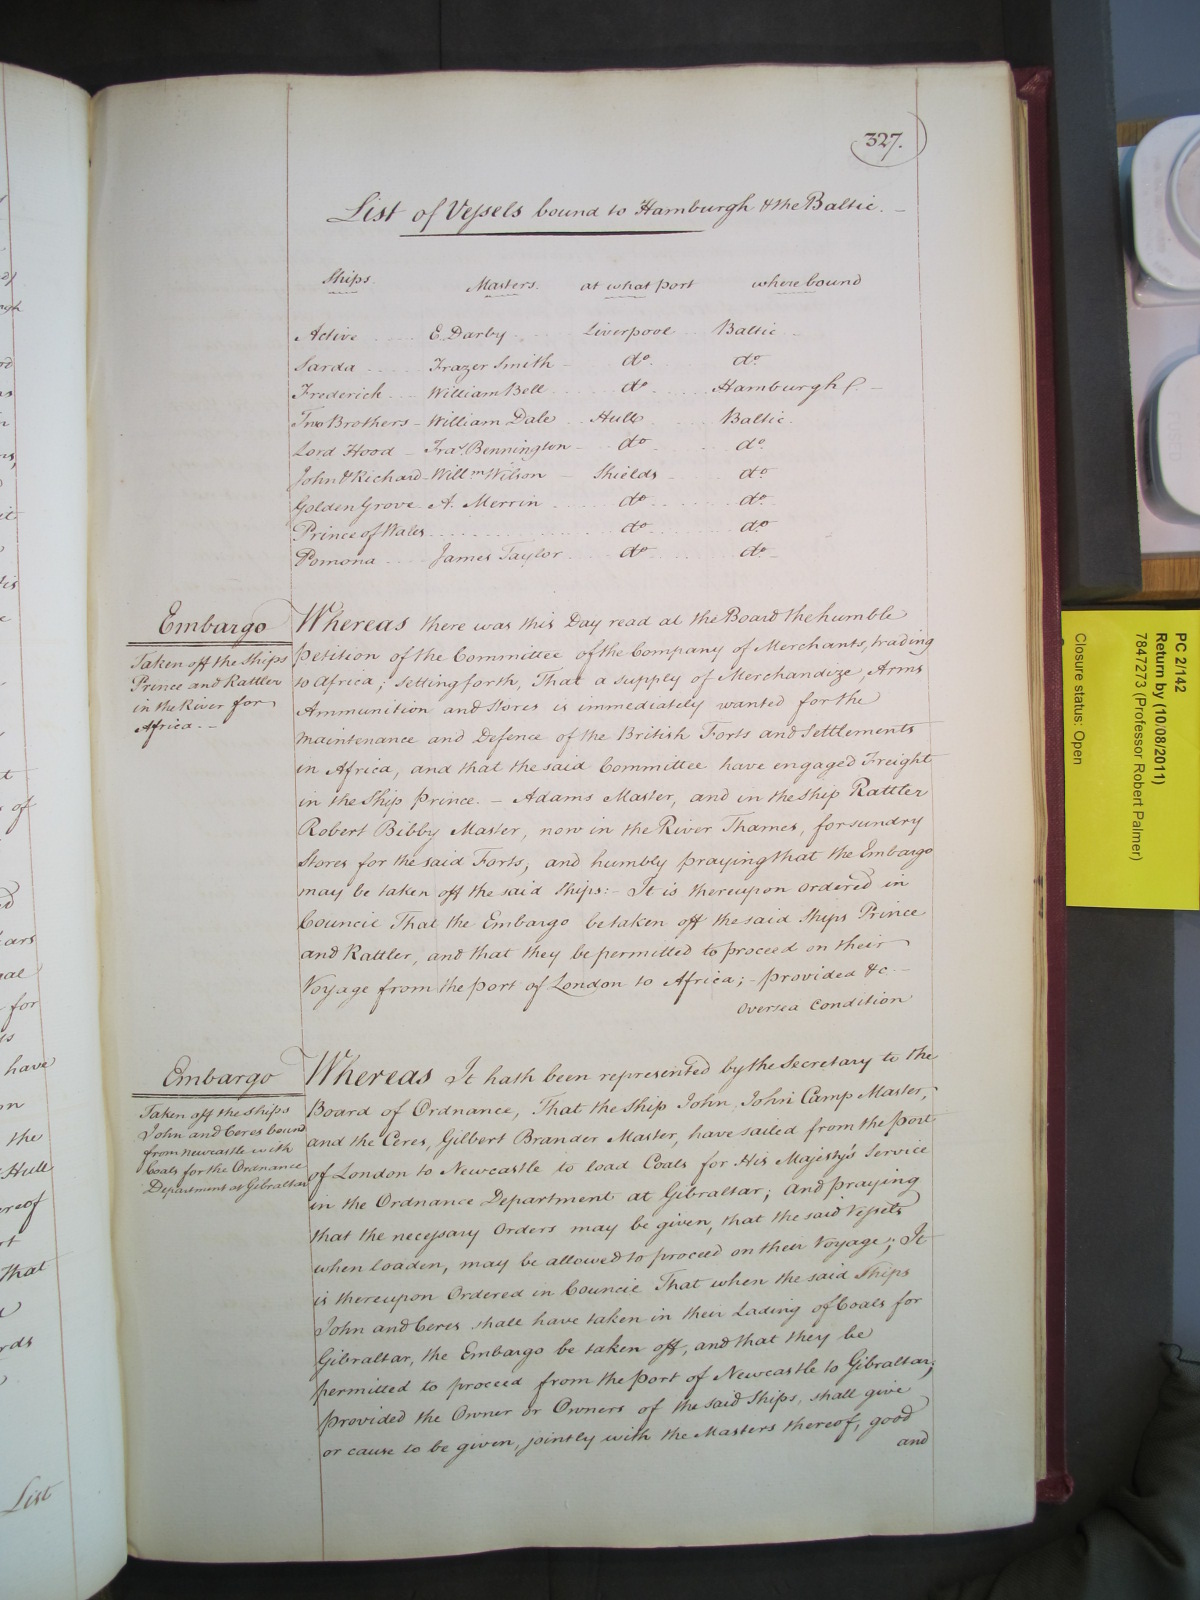 327.
List of Vessels bound to Hamburgh & the Baltic. -
Ships Masters. at what port where bound
Active E. Darby Liverpool Baltic
Sarda Frazer Smith do. do.
Frederick William Bell do. Hamburgh
Two Brothers - William Dale Hull Baltic.
Lord Hood - Fras. Bennington - do. do.
John & Richard - Willm. Wilson - Shields do.
Golden Grove A. Merrin do. do.
Prince of Wales do. do.
Pomona James Taylor do. do.
Embargo
Taken off the Ships
Prince and Rattler
in the River for
Africa. -
Whereas there was this Day read at the Board the humble
Petition of the Committee of the Company of Merchants, trading
to Africa; setting forth, That a supply of Merchandize, Arms
Ammunition and Stores is immediately wanted for the
Maintenance and Defence of the British Forts and Settlements
in Africa, and that the said Committee have engaged Freight
in the Ship Prince. - Adams Master, and in the Ship Rattler
Robert Bibby Master, now in the River Thames, for sundry
Stores for the said Forts, and humbly praying that the Embargo
may be taken off the said Ships: - It is thereupon ordered in
Council That the Embargo be taken off the said Ships Prince
and Rattler, and that they be permitted to proceed on their
Voyage from the port of London to Africa; - provided &c. -
Oversea Condition
Embargo
Taken off the Ships
John and Ceres bound
from Newcastle with
Coals for the Ordnance
Department at Gibraltar
Whereas It hath been represented by the Secretary to the
Board of Ordnance, That the Ship John, John Camp Master,
and the Ceres, Gilbert Brander Master, have sailed from the Port
of London to Newcastle to load Coals for His Majesty's Service
in the Ordnance Department at Gibraltar; And praying
that the necessary Orders may be given, that the said Vessels
when Loaden, may be allowed to proceed on their Voyage; It
is thereupon Ordered in Council That when the said Ships
John and Ceres shall have taken in their Lading of Coals for
Gibraltar, the Embargo be taken off, and that they be
permitted to proceed from the Port of Newcastle to Gibraltar;
provided the Owner or Owners of the said Ships, shall give
or cause to be given, jointly with the Masters thereof, good
and
have
the
Hull
That
List
PC 2/142
Return by (10/08/2011)
7847273 (Professor Robert Palmer)
Closure status: Open